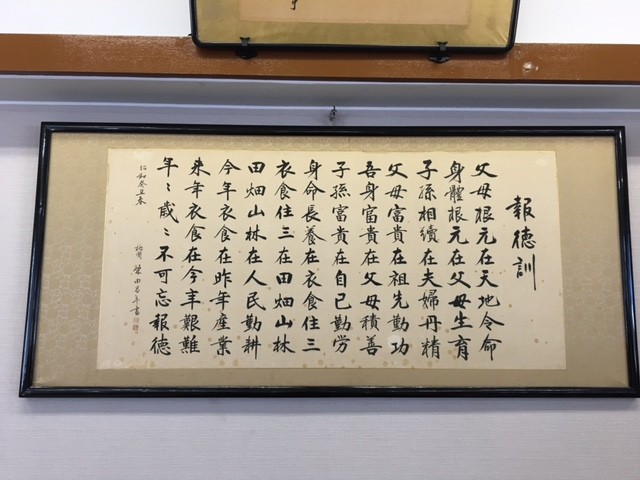 報徳訓
父母根元在天地令命
身體根元在父母生育
子孫相續在夫婦丹精
父母富貴在祖先勤功
吾身富貴在父母積善
子孫富貴在自己勤労
身命長養在衣食住三
衣食住三在田畑山林
田畑山林在人民勤耕
今年衣食在昨年産業
来年衣食在今年艱難
年〻歳〻不可忘報徳
昭和癸丑春